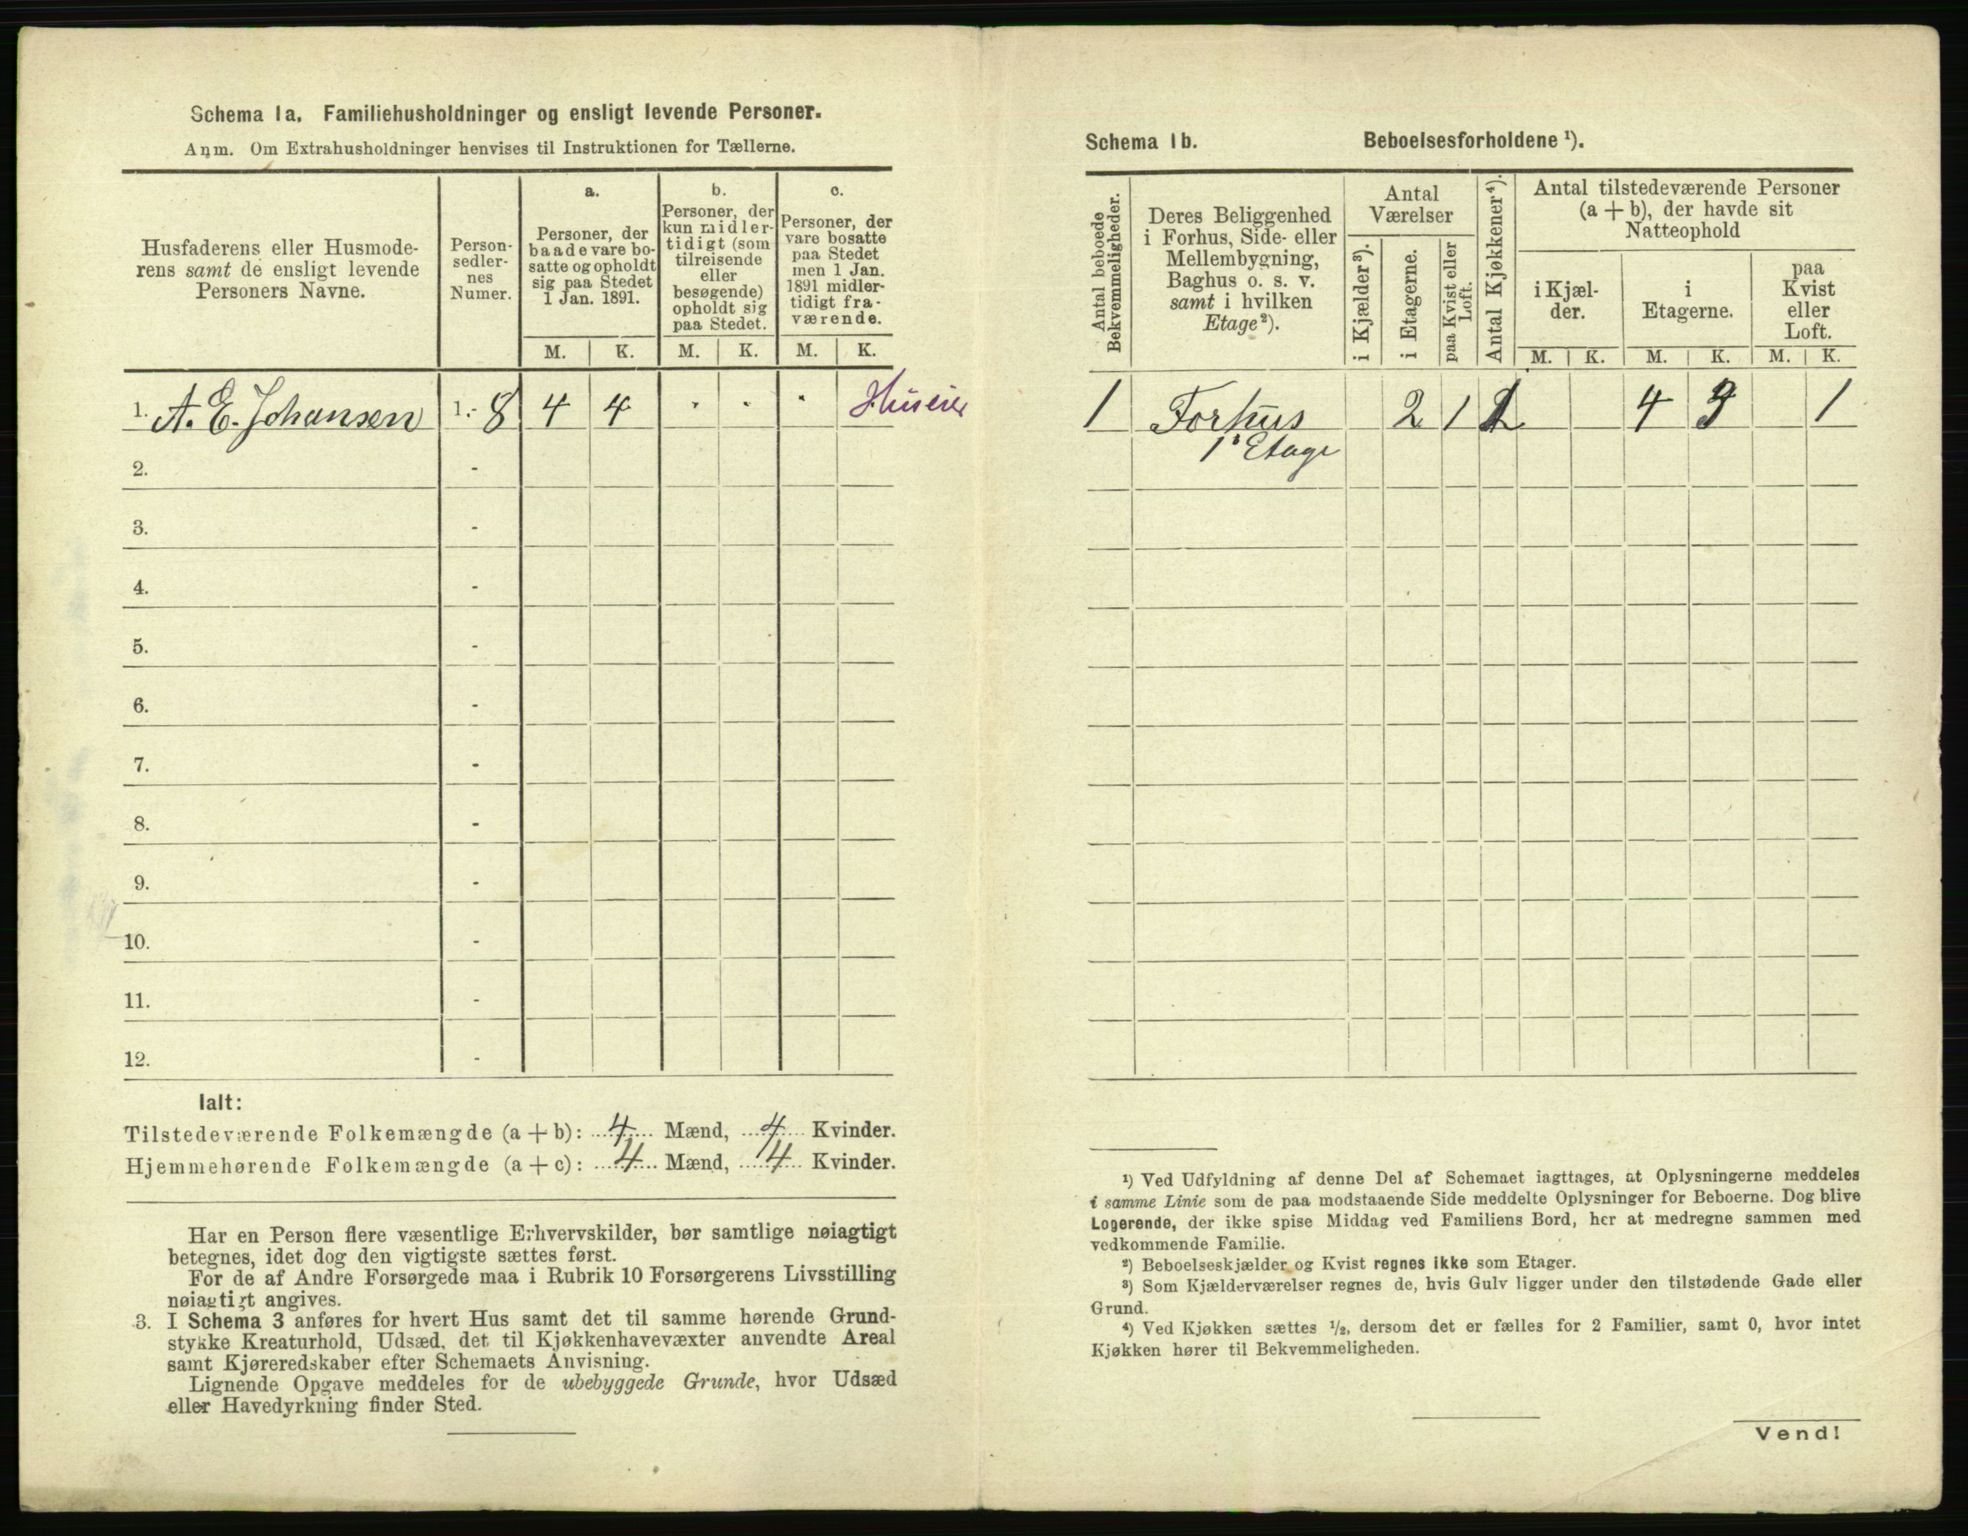 Schema 1a. Familiehusholdninger og ensligt levende Personer.
Anm. Om Extrahusholdninger henvises til Instruktionen for Tællerne.
Husfaderens eller Husmode-
rens samt de ensligt levende
Personers Navne.
Person-
sedler-
nes
Numer.
a.
Personer, der
baade vare bo-
satte og opholdt
sig paa Stedet
1 Jan. 1891.
b.
Personer, der
kun midler-
tidigt (som
tilreisende
eller
besøgende)
opholdt sig
paa Stedet.
c.
Personer, der
vare bosatte
paa Stedet
men 1 Jan.
1891 midler-
tidigt fra-
værende.
M. K. M. K. M. K.
1. A. E. Johansen 1.-8 4 4 " " " Huseier
2. -
3. -
4. -
5. -
6. -
7. -
8. -
9. -
10. -
11. -
12. -
Ialt:
Tilstedeværende Folkemængde (a + b): 4 Mænd, 4 Kvinder.
Hjemmehørende Folkemængde (a + c): 4 Mænd, 4 Kvinder.
Har en Person flere væsentlige Erhvervskilder, bør samtlige nøiagtigt
betegnes, idet dog den vigtigste sættes først.
For de af Andre Forsørgede maa i Rubrik 10 Forsørgerens Livsstilling
nøiagtigt angives.
3. I Schema 3 anføres for hvert Hus samt det til samme hørende Grund-
stykke Kreaturhold, Udsæd, det til Kjøkkenhavevæxter anvendte Areal
samt Kjøreredskaber efter Schemaets Anvisning.
Lignende Opgave meddeles for de ubebyggede Grunde, hvor Udsæd
eller Havedyrkning finder Sted.
Schema 1b. Beboelsesforholdene ¹).
Antal beboede
Bekvemmeligheder.
Deres Beliggenhed
i Forhus, Side- eller
Mellembygning,
Baghus o. s. v.
samt i hvilken
Etage²).
Antal
Værelser
i Kjælder³).
i Etagerne.
paa Kvist eller
Loft.
Antal Kjøkkener⁴).
Antal tilstedeværende Personer
(a + b), der havde sit
Natteophold
i Kjæl-
der.
i
Etagerne.
paa
Kvist
eller
Loft.
M. K. M. K. M. K.
1 Forhus 2 1 1 4 3 1
1ˢ Etage
¹) Ved Udfyldning af denne Del af Schemaet iagttages, at Oplysningerne meddeles
i samme Linie som de paa modstaaende Side meddelte Oplysninger for Beboerne. Dog blive
Logerende, der ikke spise Middag ved Familiens Bord, her at medregne sammen med
vedkommende Familie.
²) Beboelseskjælder og Kvist regnes ikke som Etager.
³) Som Kjælderværelser regnes de, hvis Gulv ligger under den tilstødende Gade eller
Grund.
⁴) Ved Kjøkken sættes ½, dersom det er fælles for 2 Familier, samt 0, hvor intet
Kjøkken hører til Bekvemmeligheden.
Vend!